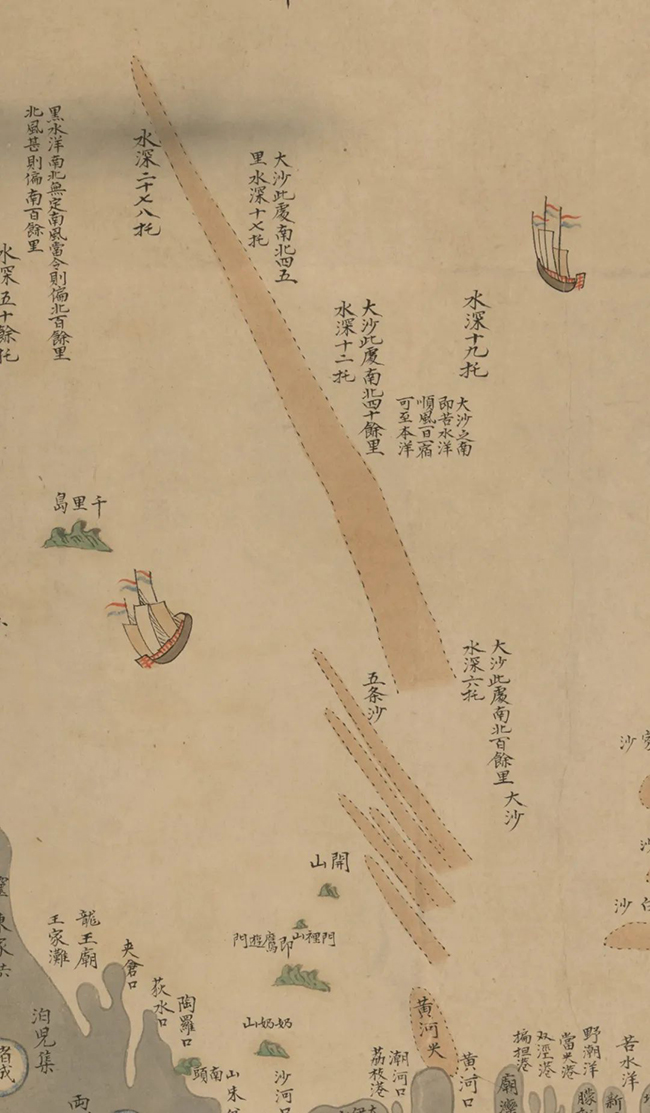 黑水洋南北無定南風當令則偏北百餘里
北風甚則偏南百餘里
水深五十餘托
水深二十七八托
大沙此處南北四五
里水深十七托
大沙此處南北四十餘里
水深十二托
水深十九托
大沙之南
即苦水洋
順風一日一宿
可至本洋
千里島
大沙此處南北百餘里
水深六托
大沙
五条沙
開山
門裡山即鷹遊門
奶奶山
龍王廟
王家灘
夾倉口
荻水口
陶羅口
泊兒集
南頭山
沙河口
黃河尖
黃河口
潮河口
荔枝港
廟灣
野潮洋
當共港
双涇港
摇担港
苦水洋
新
朦